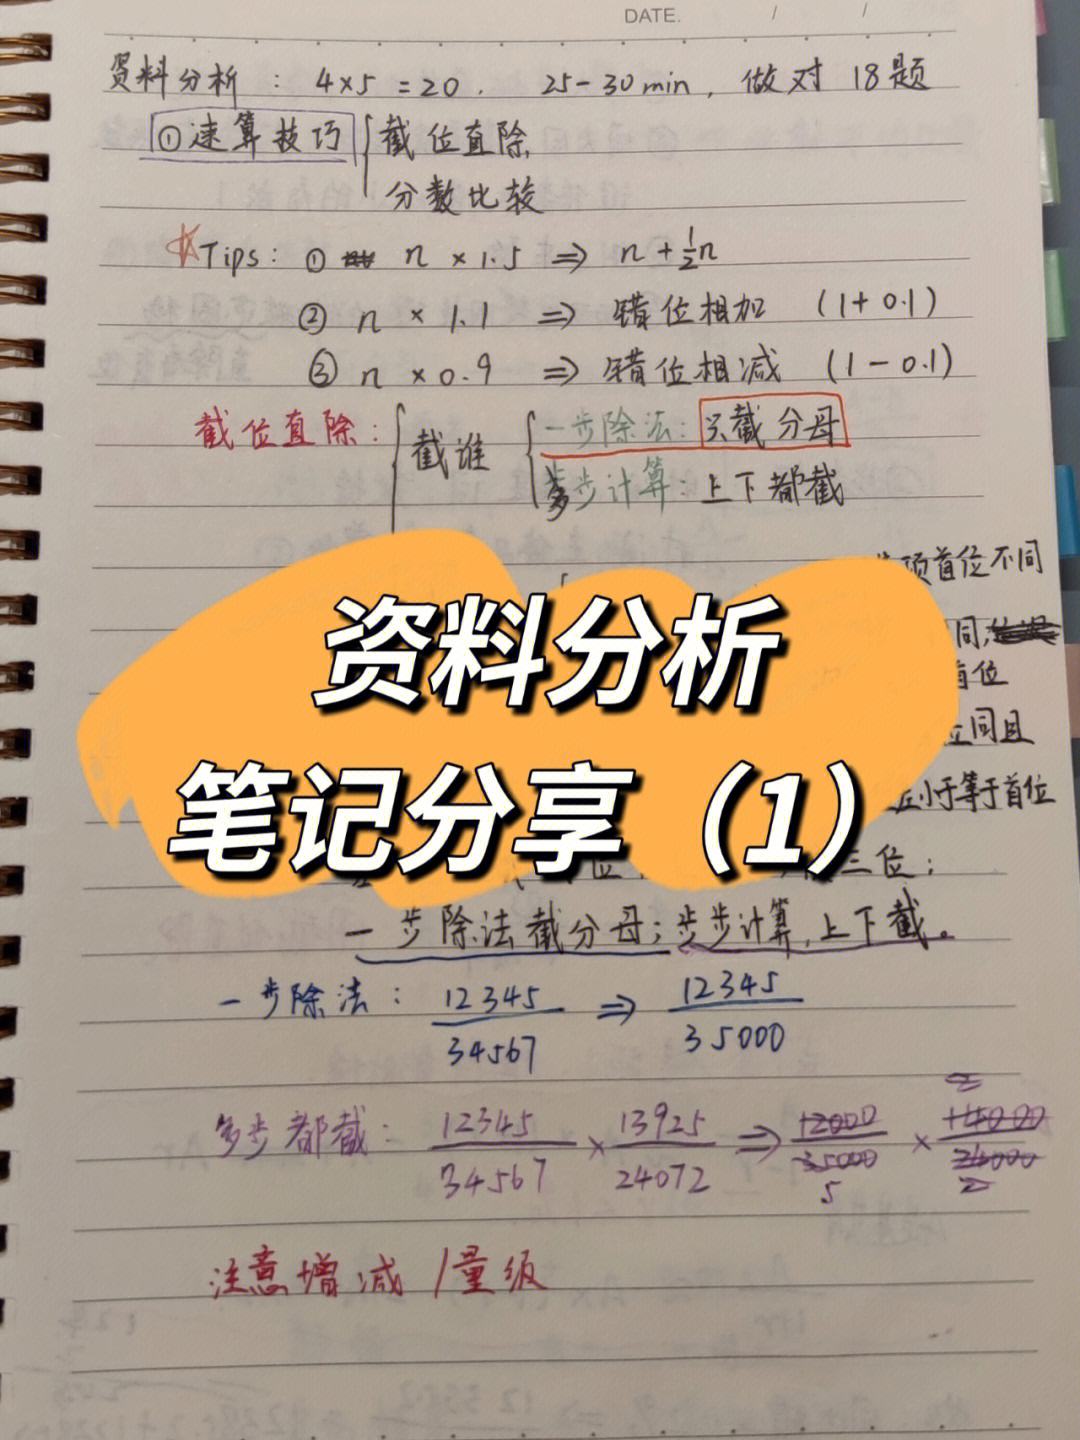 DATE. / /
资料分析：4×5=20. 25-30min，做对18题
①速算技巧 截位直除
分数比较
☆Tips：① n×1.5 ⇒ n+½n
② n×1.1 ⇒ 错位相加 (1+0.1)
③ n×0.9 ⇒ 错位相减 (1-0.1)
截位直除： 截谁 一步除法：只截分母
多步计算：上下都截
项首位不同
同,
首位
位同且
小于等于首位
资料分析
笔记分享（1）
位 三位；
一步除法截分母；多步计算，上下截。
一步除法： 12345/34567 ⇒ 12345/35000
多步都截： 12345/34567 × 13925/24072 ⇒ 12000/35000 × 14000/24000
2
5 2
注意增减/量级